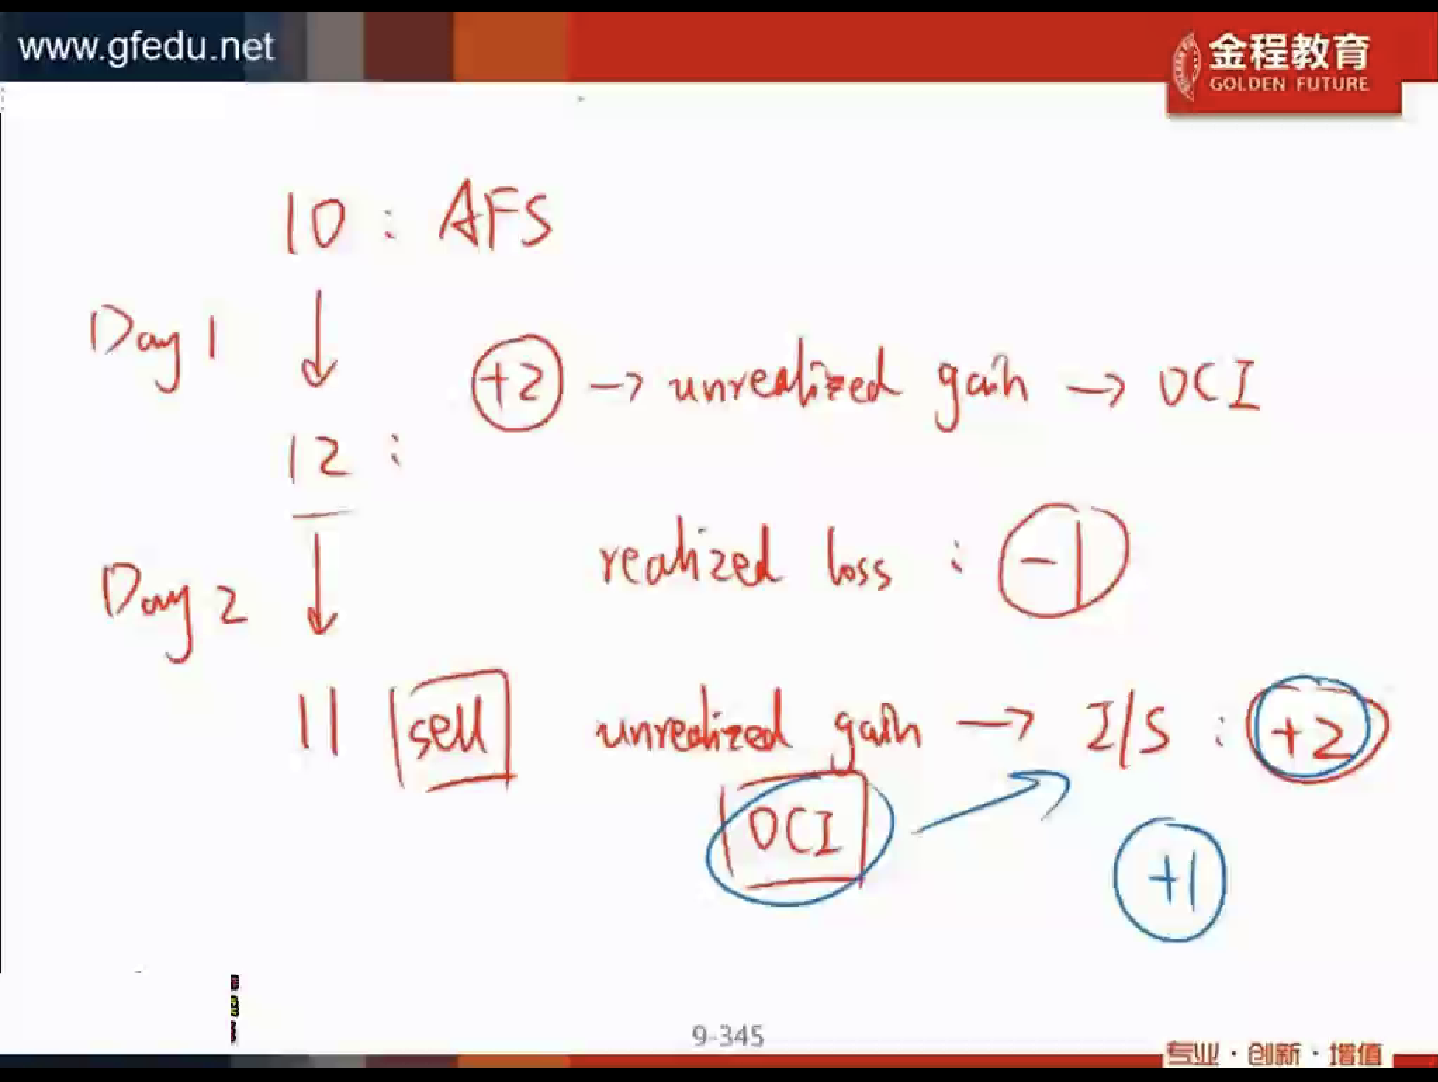 www.gfedu.net
金程教育
GOLDEN FUTURE
10 : AFS
Day 1 ↓ +2 → unrealized gain → OCI
12 :
Day 2 ↓ realized loss : -1
11 sell unrealized gain → I/S : +2
OCI
+1
9-345
专业·创新·增值